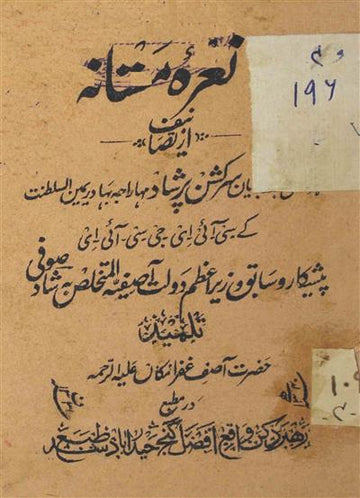 نعرۂ مستانہ
م
۱۹۶
از تصانیف
سرکشن پرشاد مہاراجہ بہادر یمین السلطنت
کے سی آئی ای جی سی آئی ای
پیشکار و سابق وزیر اعظم دولت آصفیہ المتخلص بہ شاد صوفی
تلمیذ
حضرت آصف غفران مکان علیہ الرحمہ
در مطبع
رہبر دکن واقع افضل گنج حیدرآباد طبع شد